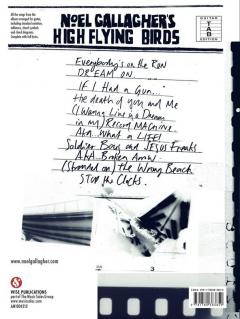 NOEL GALLAGHER'S
HIGH FLYING BIRDS
GUITAR
TAB
EDITION
All the songs from the
album arranged for guitar,
Everybody's on the RUN
DREAM ON.
IF I Had a Gun...
the death of you and Me
(I Wanna Live in a Dream
in my) Record MACHINE
AKA... What a LIFE!
Soldier Boys and JESUS Freaks
AKA Broken Arrow
(Stranded on) the Wrong Beach
STOP the Clocks.
3
www.noelgallagher.com
WISE PUBLICATIONS
part of The Music Sales Group
www.musicsales.com
AM1004212